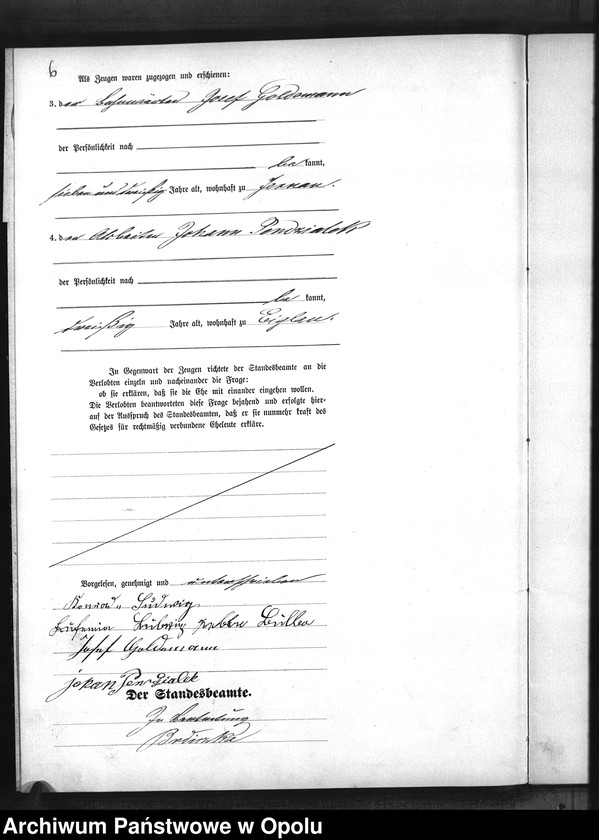 6
Als Zeugen waren zugezogen und erschienen:
3. der Josef Goldemann
der Persönlichkeit nach
be kannt,
sieben und dreißig Jahre alt, wohnhaft zu
4. der Arbeiter Johann Pendzialek
der Persönlichkeit nach
be kannt,
dreißig Jahre alt, wohnhaft zu
In Gegenwart der Zeugen richtete der Standesbeamte an die
Verlobten einzeln und nacheinander die Frage:
ob sie erklären, daß sie die Ehe mit einander eingehen wollen.
Die Verlobten beantworteten diese Frage bejahend und erfolgte hier-
auf der Ausspruch des Standesbeamten, daß er sie nunmehr kraft des
Gesetzes für rechtmäßig verbundene Eheleute erkläre.
Vorgelesen, genehmigt und unterschrieben
Konrad Ludwig
Ludwig
Josef Goldemann
Johan Pendzialek
Der Standesbeamte.
In Vertretung
Archiwum Państwowe w Opolu